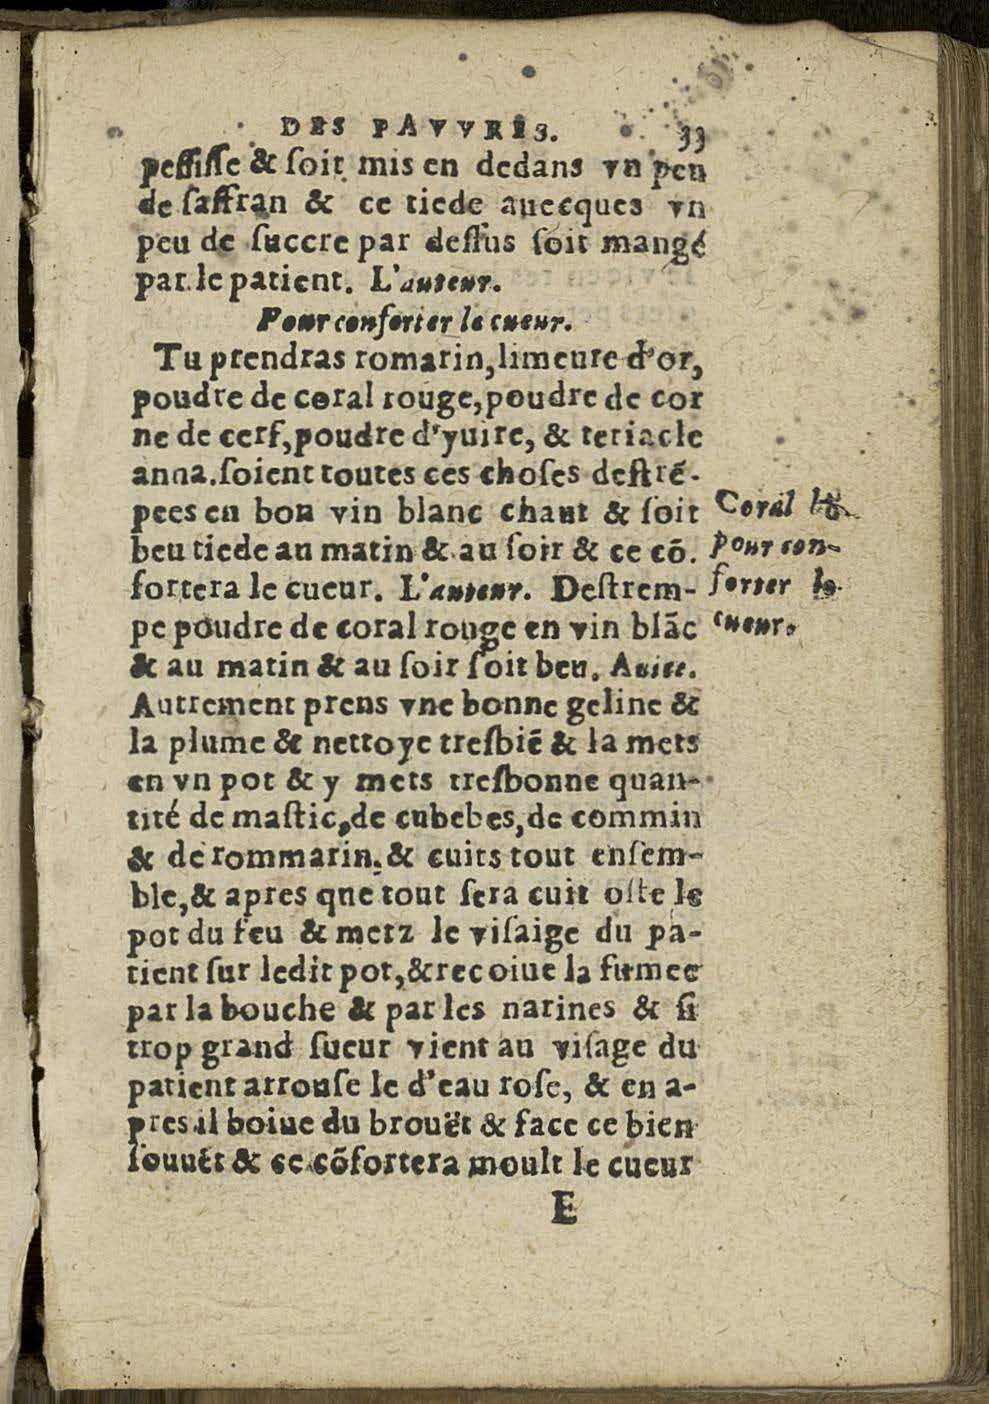 DES PAVVRES. 33
pessisse & soit mis en dedans vn peu
de saffran & ce tiede auecques vn
peu de succre par dessus soit mangé
par le patient. L'auteur.
Pour conforter le cueur.
Tu prendras romarin, limeure d'or,
poudre de coral rouge, poudre de cor
ne de cerf, poudre d'yuire, & teriacle
anna. soient toutes ces choses destré-
pees en bon vin blanc chaut & soit
beu tiede au matin & au soir & ce cō.
fortera le cueur. L'auteur. Destrem-
pe poudre de coral rouge en vin blāc
& au matin & au soir soit beu. Auice.
Autrement prens vne bonne geline &
la plume & nettoye tresbiē & la mets
en vn pot & y mets tresbonne quan-
tité de mastic, de cubebes, de commin
& de rommarin. & cuits tout ensem-
ble, & apres que tout sera cuit oste le
pot du feu & metz le visaige du pa-
tient sur ledit pot, & recoiue la fumee
par la bouche & par les narines & si
trop grand sueur vient au visage du
patient arrouse le d'eau rose, & en a-
pres il boiue du brouët & face ce bien
souuēt & ce cōfortera moult le cueur
E
Coral
pour con-
forter le
cueur.